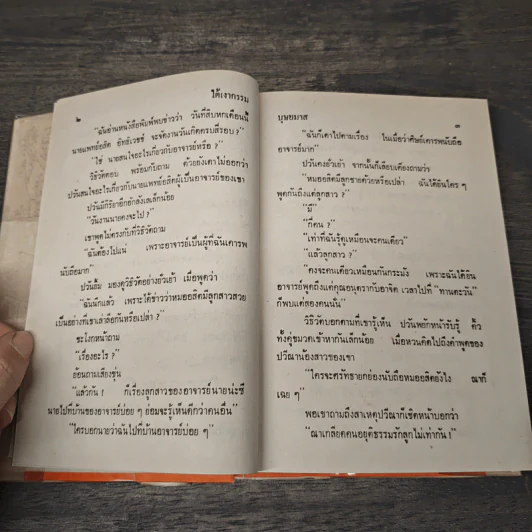 ๒
ใต้เงากรรม
"ฉันอ่านหนังสือพิมพ์พบข่าวว่า วันที่สิบหกเดือนนี้
นายแพทย์อสิต อิทธิเวชช์ จะจัดงานวันเกิดครบสี่รอบ?"
"ใช่ นายสนใจอะไรเกี่ยวกับอาจารย์หรือ?"
วิธิวัตตอบ พร้อมกับถาม ด้วยยังเดาไม่ออกว่า
ปวันสนใจอะไรเกี่ยวกับนายแพทย์อสิตผู้เป็นอาจารย์ของเขา
ปวันมีกิริยาอึกอักลังเลเล็กน้อย
"วันงานนายคงจะไป?"
เขาพูดไม่ตรงกับที่วิธิวัตถาม
"ฉันต้องไปแน่ เพราะอาจารย์เป็นผู้ที่ฉันเคารพ
นับถือมาก"
ปวันยิ้ม มองดูวิธิวัตอย่างยั่วเย้า เมื่อพูดว่า
"ฉันนึกแล้ว เพราะได้ข่าวว่าหมออสิตมีลูกสาวสวย
เป็นอย่างที่เขาเล่าลือกันหรือเปล่า?"
ชะโงกหน้าถาม
"เรื่องอะไร?"
ย้อนถามเสียงขุ่น
"แล้วกัน! ก็เรื่องลูกสาวของอาจารย์นายน่ะซี
นายไปที่บ้านของอาจารย์บ่อย ๆ ย่อมจะรู้เห็นดีกว่าคนอื่น"
"ใครบอกนายว่าฉันไปที่บ้านอาจารย์บ่อย ๆ"
บุษยมาส
๓
"ฉันก็เดาไปตามเรื่อง ในเมื่อว่าศิษย์เคารพนับถือ
อาจารย์มาก"
ปวันคงยั่วเย้า จากนั้นก็เลียบเคียงถามว่า
"หมออสิตมีลูกชายด้วยหรือเปล่า ฉันได้ยินใคร ๆ
พูดกันถึงแต่ลูกสาว?"
"มี"
"กี่คน?"
"เท่าที่ฉันรู้ดูเหมือนจะคนเดียว"
"แล้วลูกสาว?"
"คงจะคนเดียวเหมือนกันกระมัง เพราะฉันได้ยิน
อาจารย์พูดถึงแต่คุณอนุตรากับอาจิต เวลาไปที่ "ทานตะวัน"
ก็พบแต่สองคนนั้น"
วิธิวัตบอกตามที่เขารู้เห็น ปวันพยักหน้ารับรู้ คิ้ว
ทั้งคู่ขมวดเข้าหากันเล็กน้อย เมื่อหวนคิดไปถึงคำพูดของ
ปวีณาน้องสาวของเขา
"ใครจะศรัทธายกย่องนับถือหมออสิตยังไง ณาก็
เฉย ๆ"
พอเขาถามถึงสาเหตุปวีณาก็เชิดหน้าบอกว่า
"ณาเกลียดคนอยุติธรรมรักลูกไม่เท่ากัน!"